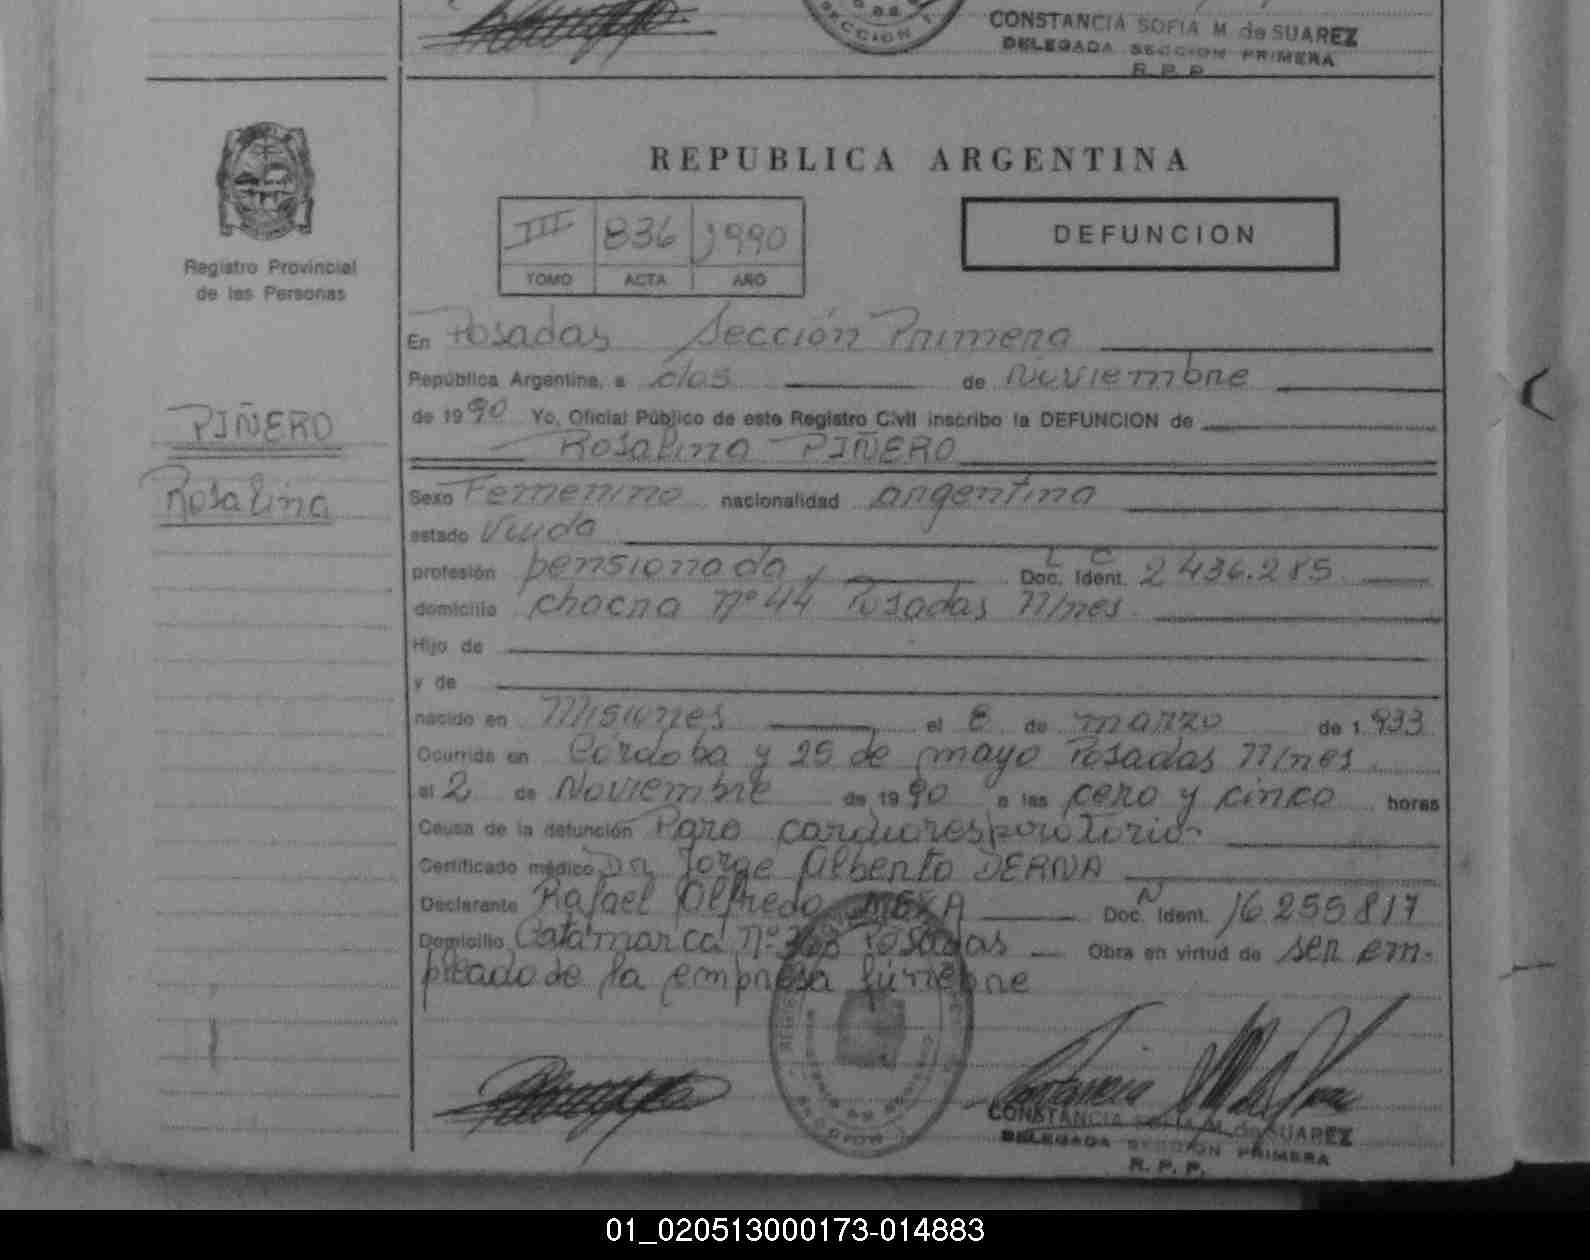 CONSTANCIA SOFIA M. de SUAREZ
DELEGADA SECCION PRIMERA
R. P. P.
SECCION 1
REPUBLICA ARGENTINA
III 836 1990
TOMO ACTA AÑO
DEFUNCION
Registro Provincial
de las Personas
En Posadas Sección Primera
República Argentina, a dos de Noviembre
de 1990 Yo, Oficial Público de este Registro Civil inscribo la DEFUNCION de
Rosalina PIÑERO
PIÑERO
Rosalina
Sexo Femenino nacionalidad argentina
estado Viuda
profesión pensionada, Doc. Ident. L C 2436.285
domicilio chacra Nº 44 Posadas Mnes
Hijo de
y de
nacido en Misiones el 8 de marzo de 1.933
Ocurrida en Córdoba y 25 de mayo Posadas Mnes
el 2 de Noviembre de 1990 a las cero y cinco horas
Causa de la defunción Paro cardiorespiratorio
Certificado médico Dr Jorge Alberto DERNA
Declarante Rafael Alfredo Doc. N Ident. 16255817
Domicilio Catamarca Nº Posadas Obra en virtud de ser em-
pleado de la empresa fúnebre
CONSTANCIA SOFIA M. de SUAREZ
DELEGADA SECCION PRIMERA
R. P. P.
01_020513000173-014883